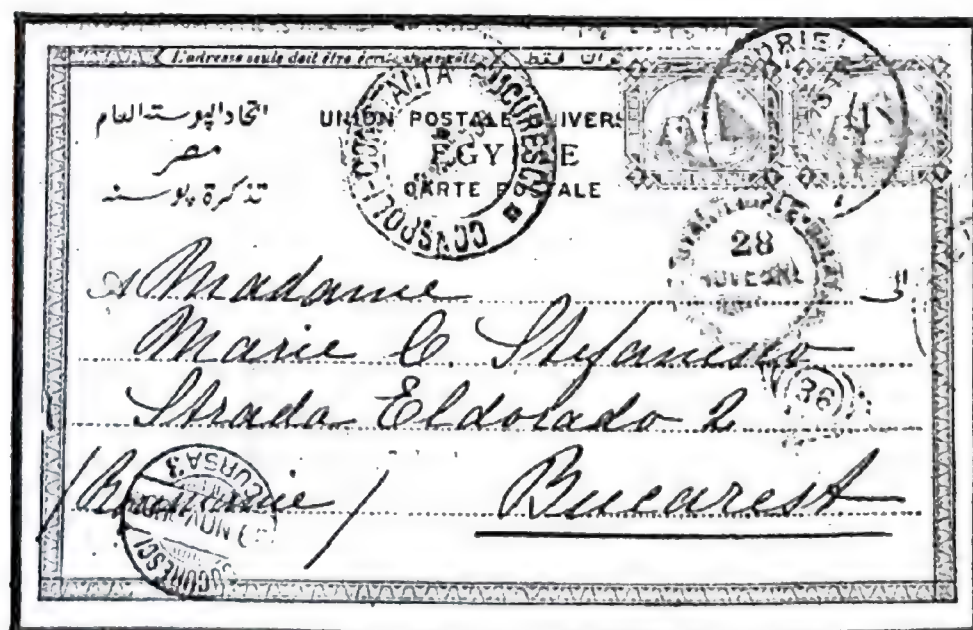 L'adresse seule doit être écrite
اتحاد البوسته العام
مصر
تذكرة بوسته
UNION POSTALE UNIVERS
EGYPTE
CARTE POSTALE
CONSPOLI-CONSTANTA BUCURESCI
28
à Madame
الى
Marie C. Stefanesco
86
Strada Eldorado 2
(Roumanie)
Bucarest
BUCURESCI
CURSA 3
NOV